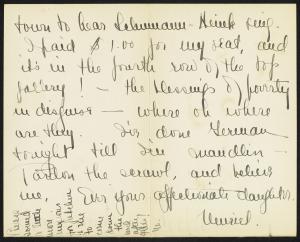 town to hear Schumann-Heink sing.
I paid $1.00 for my seat, and
it's in the fourth row of the top
gallery! — the blessings of poverty
in disguise — where oh where
are they. I've done German
tonight till I'm maudlin —
Pardon the scrawl, and believe
me, Ever your affectionate daughter,
Muriel.